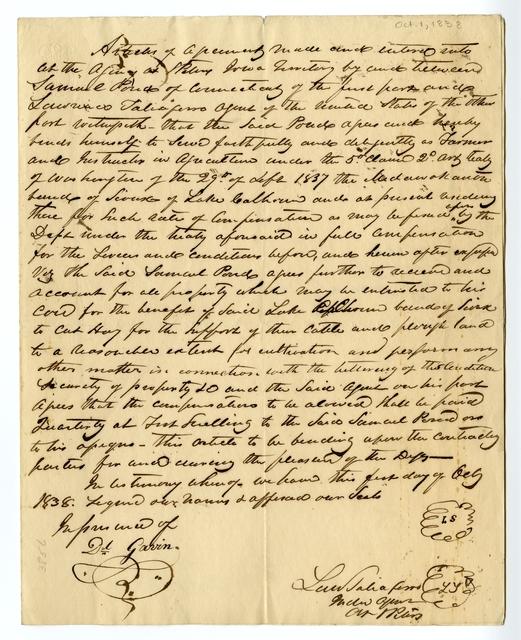 Oct. 1, 1838
Articles of Agreement made and entered into
at the Agency at St Peters Iowa Territory by and between
Samuel Pond of Connecticut of the first part and
Lawrence Taliaferro agent of the United States of the other
part witnesseth - that the Said Pond agrees and hereby
binds himself to Serve faithfully and diligently as Farmer
and Instructor in Agriculture under the 5th clause 2d art treaty
of Washington of the 29th of Sept 1837 the
band of Sioux of Lake Calhoun and at present residing
there for Such rate of Compensation as may be fixed by the
Dept under the treaty aforesaid in full Compensation
for the Services and Conditions before, and herein after expressed
Viz the Said Samuel Pond agrees further to receive and
account for all property which may be entrusted to his
care for the benefit of Said Lake Calhoun band of Sioux
to Cut Hay for the Support of their Cattle and plough land
to a reasonable extent for cultivation and perform any
other matter in connection with the
Security of property &c and the Said Agent on his part
agrees that the compensation to be allowed Shall be paid
Quarterly at Fort Snelling to the Said Samuel Pond or
to his assigns - this article to be binding upon the contracting
parties for and during the pleasure of the Dept
In testimony whereof we have this first day of Octr
1838. Signed our names & affixed our Seals
In presence of
LS
Dl Gavin
Law Taliaferro LS
Indn Agent
at St Peters